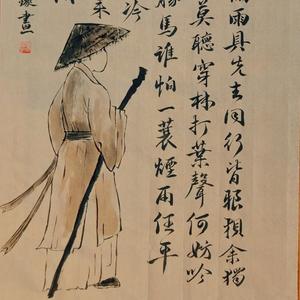 雨雨具先去同行皆狼狽余獨
莫聽穿林打葉聲何妨吟
勝馬誰怕一蓑煙雨任平
冷
來
畫